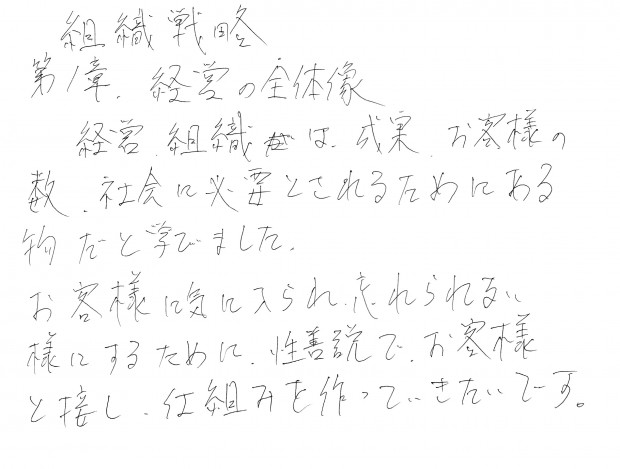 組織戦略
第1章、経営の全体像
経営、組織は、成果、お客様の
数、社会に必要とされるためにある
物だと学びました。
お客様に気に入られ、忘れられない
様にするために、性善説で、お客様
と接し、仕組みを作っていきたいです。